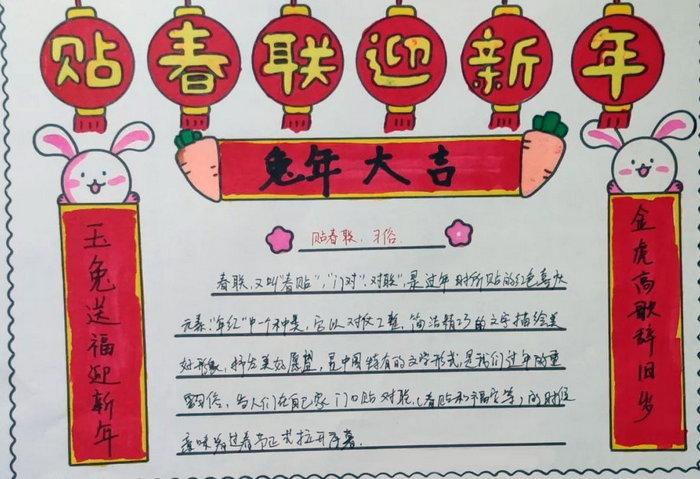 贴春联迎新年
兔年大吉
玉兔送福迎新年
金虎高歌辞旧岁
贴春联，习俗
春联，又叫"春贴"，"门对"，对联"，是过年时所贴的红色喜庆
元素"年红"中一个种类，它以对仗工整，简洁精巧的文字描绘美
好形象，抒发美好愿望，是中国特有的文学形式，是我们过年的重
习俗，当人们在自己家门口贴对联（春贴和福字等）的时候
意味着过春节正式拉开序幕.